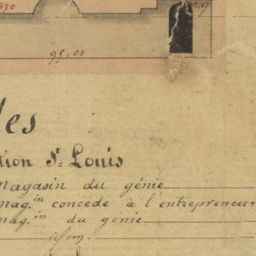 95,00
les
tion St Louis
magasin du génie
mag.in concédé à l'entrepreneur
mag.in du génie